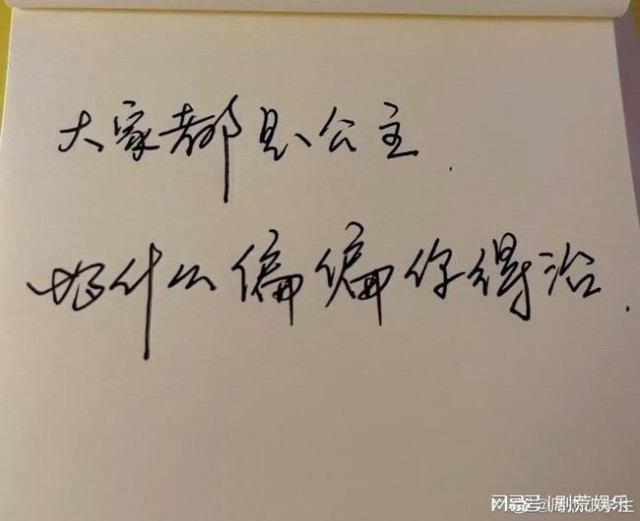 大家都是公主.
为什么偏偏你得治.
网易号|剧荒娱乐